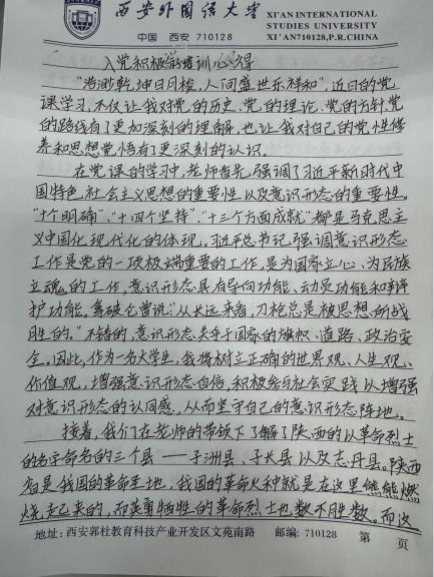 西安外国语大学
XI'AN INTERNATIONAL
STUDIES UNIVERSITY
中国 西安 710128
XI'AN710128,P.R.CHINA
入党积极分子培训心得
“浩渺乾坤日月梭,人间盛世乐祥和”,近日的党
课学习,不仅让我对党的历史、党的理论、党的方针党
的路线有了更加深刻的理解,也让我对自己的党性修
养和思想觉悟有了更深刻的认识。
在党课的学习中,老师首先强调了习近平新时代中
国特色社会主义思想的重要性以及意识形态的重要性。
“十个明确”、“十四个坚持”、“十三个方面成就”都是马克思主
义中国化现代化的体现。习近平总书记强调意识形态
工作是党的一项极端重要的工作,是为国家立心、为民族
立魂的工作,意识形态具有导向功能、动员功能和
护功能,拿破仑曾说:“从长远来看,刀枪总是被思想所战
胜的。”不错的,意识形态关乎于国家的旗帜、道路、政治安
全。因此,作为一名大学生,我将树立正确的世界观、人生观、
价值观,增强意识形态自信,积极参与社会实践以增强
对意识形态的认同感,从而坚守自己的意识形态阵地。
接着,我们在老师的带领下了解了陕西的以革命烈士
的名字命名的三个县——子洲县、子长县以及志丹县。陕西
省是我国的革命圣地,我国的革命火种就是在这里熊熊燃
烧起来的,而英勇牺牲的革命烈士也数不胜数。而这
地址:西安郭杜教育科技产业开发区文苑南路 邮编:710128 第 页